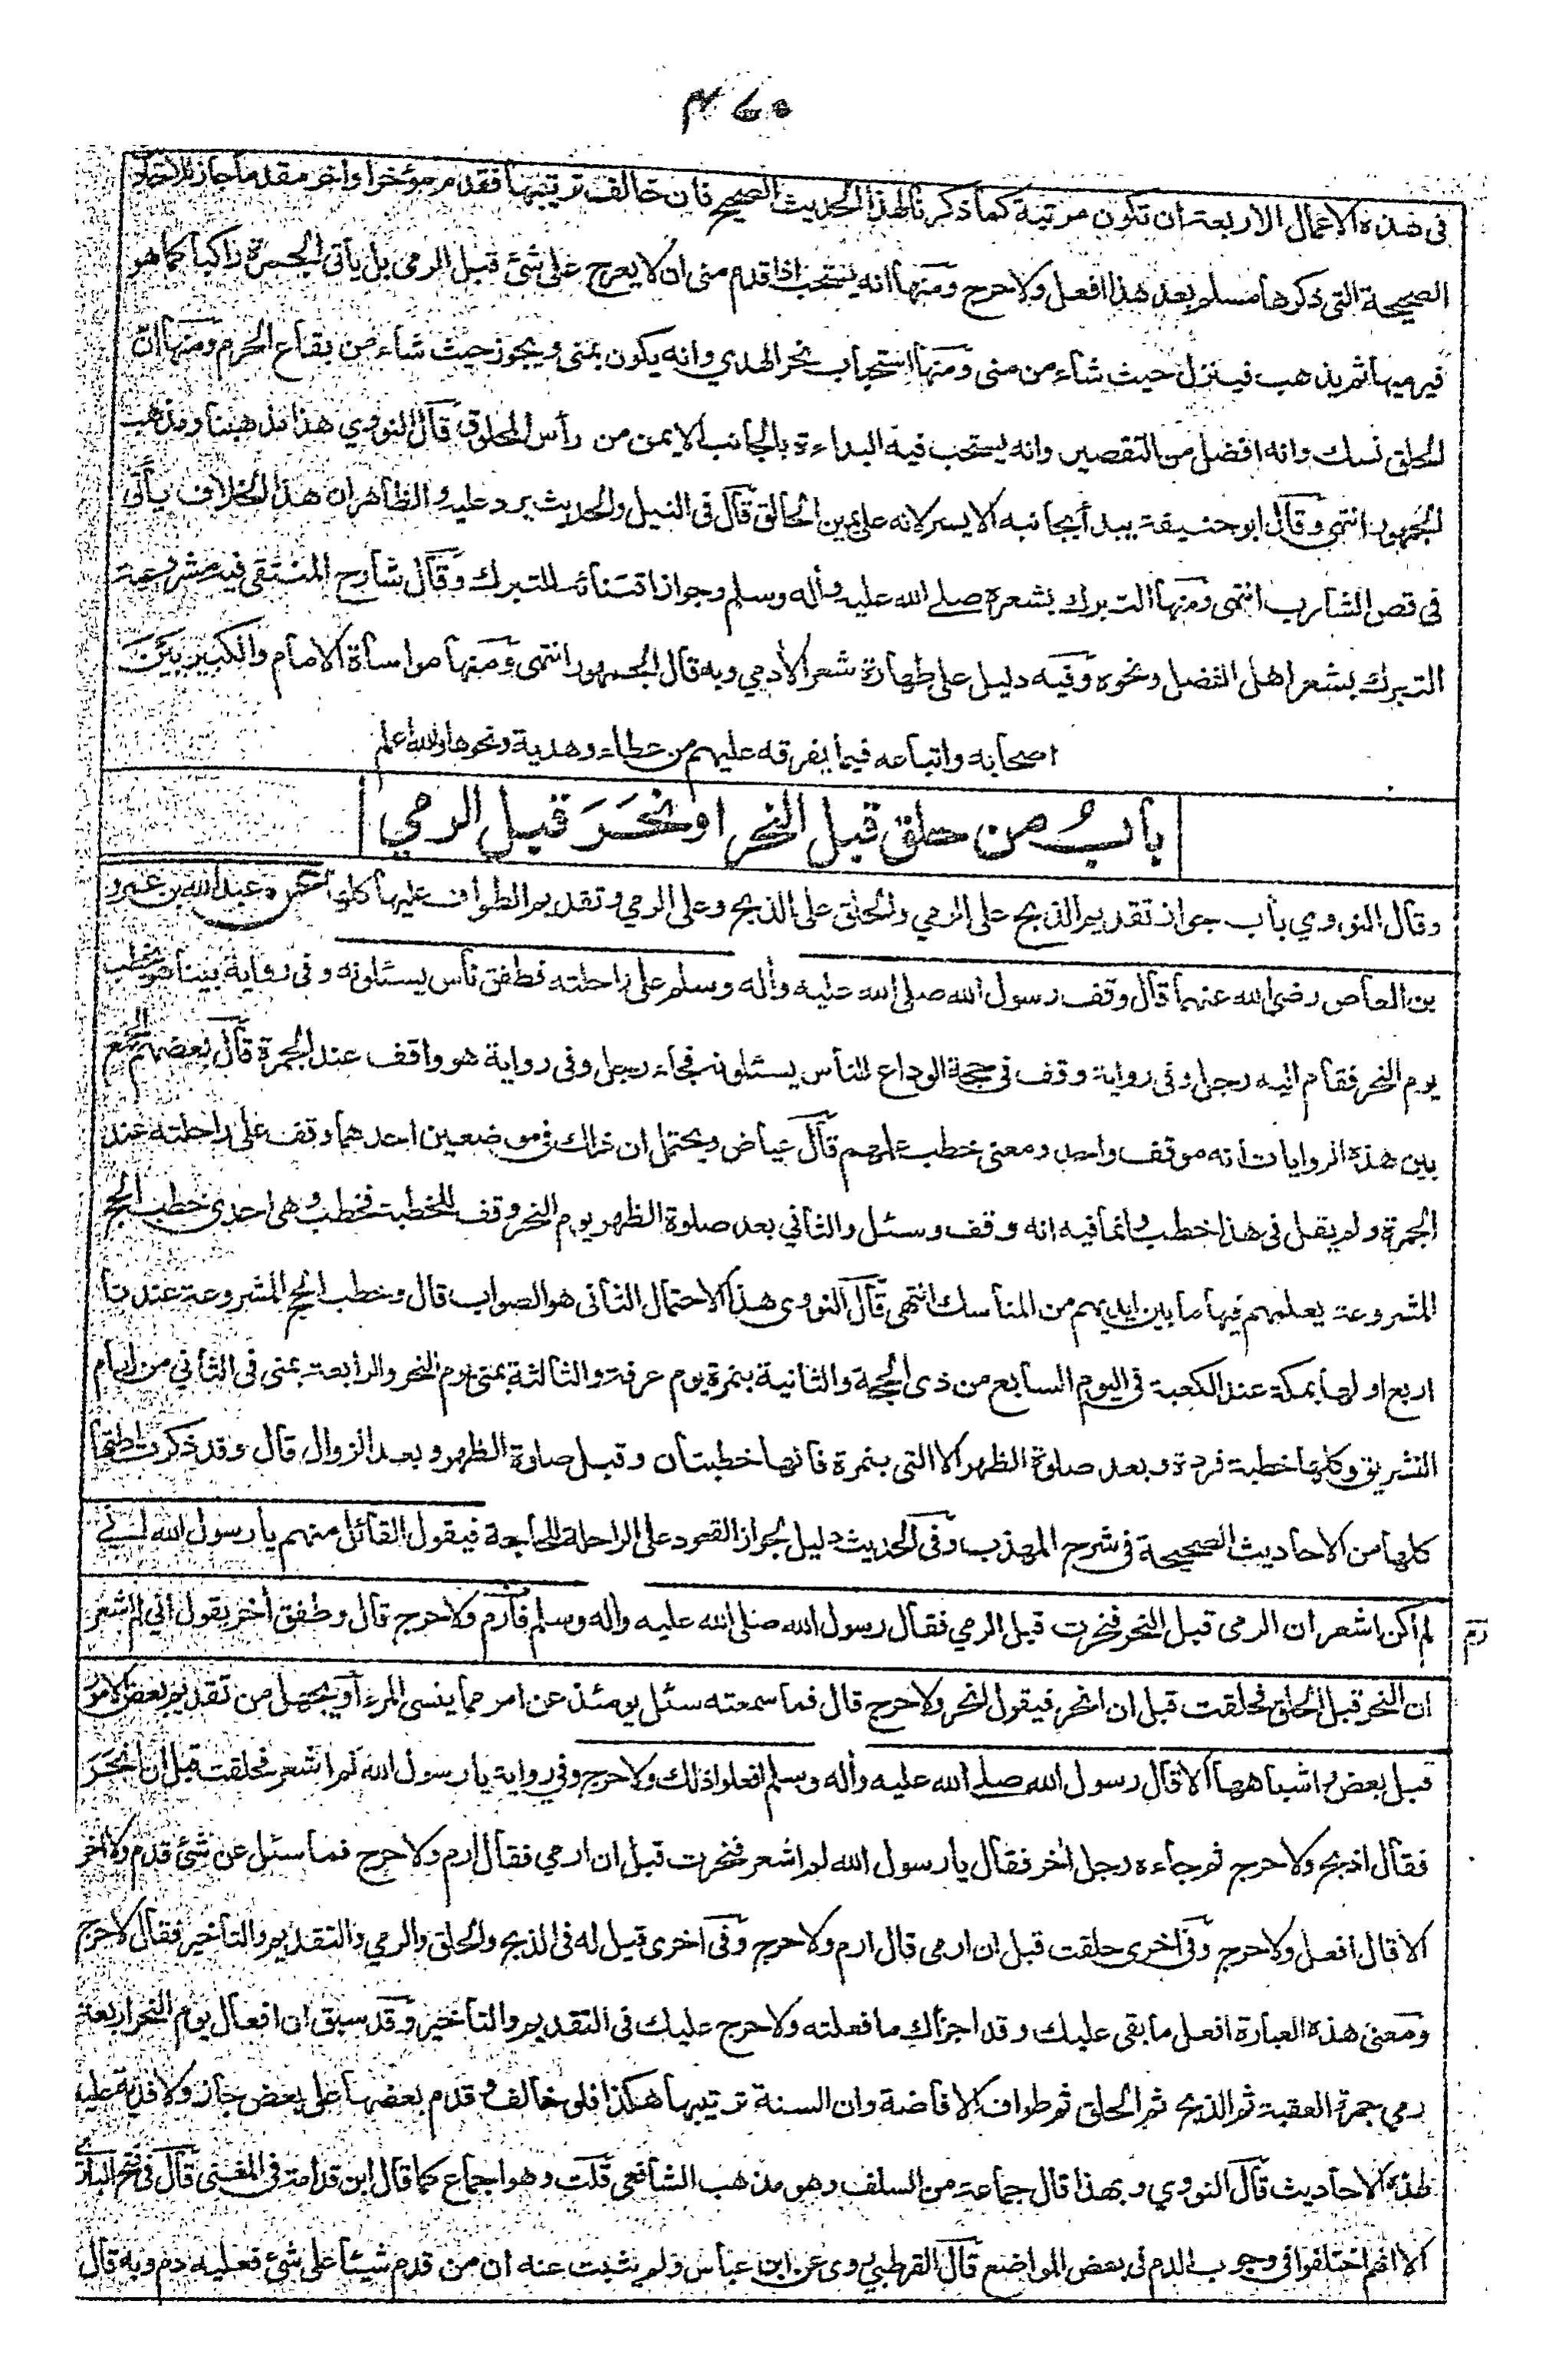 ٤٦٥
فى هذه الاعمال الاربعة ان تكون مرتبة كما ذكرنا لهذا الحديث الصحيح فان خالف ترتيبها فقدم مؤخرا واخر مقدما جاز للاحاديث
الصحيحة التى ذكرها مسلم بعد هذا افعل ولا حرج ومنها انه يستحب اذا قدم منى ان لا يعرج على شئ قبل الرمى بل يأتى الجمرة راكبا كما هو
فيرميها ثم يذهب فينزل حيث شاء من منى ومنها استحباب نحر الهدي وانه يكون بمنى ويجوز حيث شاء من بقاع الحرم ومنها ان
الحلق نسك وانه افضل من التقصير وانه يستحب فيه البداءة بالجانب الايمن من رأس المحلوق قال النووي هذا مذهبنا ومذهب
الجمهور انتهى وقال ابو حنيفة يبدأ بجانبه الايسر لانه على يمين الحالق قال فى النيل والحديث يرد عليه والظاهر ان هذا الخلاف يأتى
فى قص الشارب انتهى ومنها التبرك بشعره صلى الله عليه وأله وسلم وجواز اقتنائه للتبرك وقال شارح المنتقى فيه مشروعية
التبرك بشعر اهل الفضل ونحوه وفيه دليل على طهارة شعر الأدمي وبه قال الجمهور انتهى ومنها مواساة الامام والكبير بين
اصحابه واتباعه فيما يفرقه عليهم من عطاء وهدية ونحوها والله اعلم
باب من حلق قبل النحر او نحَرَ قبل الرمي
وقال النووي باب جواز تقديم الذبح على الرمي والحلق على الذبح وعلى الرمي وتقديم الطواف عليها كلها عن عبد الله بن عمرو
بن العاص رضى الله عنهما قال وقف رسول الله صلى الله عليه وأله وسلم على راحلته فطفق ناس يسئلونه وفى رواية بينا هو يخطب
يوم النحر فقام اليه رجل وفى رواية وقف فى حجة الوداع للناس يسئلونه فجاء رجل وفى رواية هو واقف عند الجمرة قال بعضهم الجمع
بين هذه الروايات انه موقف واحد ومعنى خطب علمهم قال عياض ويحتمل ان ذلك فى موضعين احدهما وقف على راحلته عند
الجمرة ولم يقل فى هذا خطب وانما فيه انه وقف وسئل والثاني بعد صلوة الظهر يوم النحر وقف للخطبة فخطب وهى احدى خطب الحج
المشروعة يعلمهم فيها ما بين ايديهم من المناسك انتهى قال النووى هذا الاحتمال الثانى هو الصواب قال وخطب الحج المشروعة عندنا
اربع اولها بمكة عند الكعبة فى اليوم السابع من ذى الحجة والثانية بنمرة يوم عرفة والثالثة بمنى يوم النحر والرابعة بمنى فى الثاني من ايام
التشريق وكلها خطبة فردة وبعد صلوة الظهر الا التى بنمرة فانها خطبتان وقبل صلوة الظهر وبعد الزوال قال وقد ذكرت ادلتها
كلها من الاحاديث الصحيحة فى شرح المهذب وفى الحديث دليل لجواز القعود على الراحلة للحاجة فيقول القائل منهم يا رسول الله انى
لم اكن اشعر ان الرمى قبل النحر فنحرت قبل الرمي فقال رسول الله صلى الله عليه واله وسلم فارم ولا حرج قال وطفق أخر يقول انى لم اشعر
ان النحر قبل الحلق فحلقت قبل ان انحر فيقول انحر ولا حرج قال فما سمعته سئل يومئذ عن امر مما ينسى المرء او يجهل من تقديم بعض الامور
قبل بعض واشباهها الا قال رسول الله صلى الله عليه وأله وسلم افعلوا ذلك ولا حرج وفي رواية يا رسول الله لم اشعر فحلقت قبل ان انحَرَ
فقال اذبح ولا حرج ثم جاءه رجل أخر فقال يا رسول الله لم اشعر فنحرت قبل ان ارمي فقال ارم ولا حرج فما سئل عن شئ قدم ولا اخر
الا قال افعل ولا حرج وفى اخرى حلقت قبل ان ارمى قال ارم ولا حرج وفى اخرى قيل له فى الذبح والحلق والرمي والتقديم والتأخير فقال لا حرج
ومعنى هذه العبارة افعل ما بقى عليك وقد اجزأك ما فعلته ولا حرج عليك فى التقديم والتأخير وقد سبق ان افعال يوم النحر اربعة
رمي جمرة العقبة ثم الذبح ثم الحلق ثم طواف الافاضة وان السنة ترتيبها هكذا فلو خالف وقدم بعضها على بعض جاز ولا فدية عليه
لهذه الاحاديث قال النووي وبهذا قال جماعة من السلف وهو مذهب الشافعى قلت وهو اجماع كما قال ابن قدامة فى المغنى قال فى فتح البارى
الا انهم اختلفوا فى وجوب الدم فى بعض المواضع قال القرطبي روى عن ابن عباس ولم يثبت عنه ان من قدم شيئا على شئ فعليه دم وبه قال